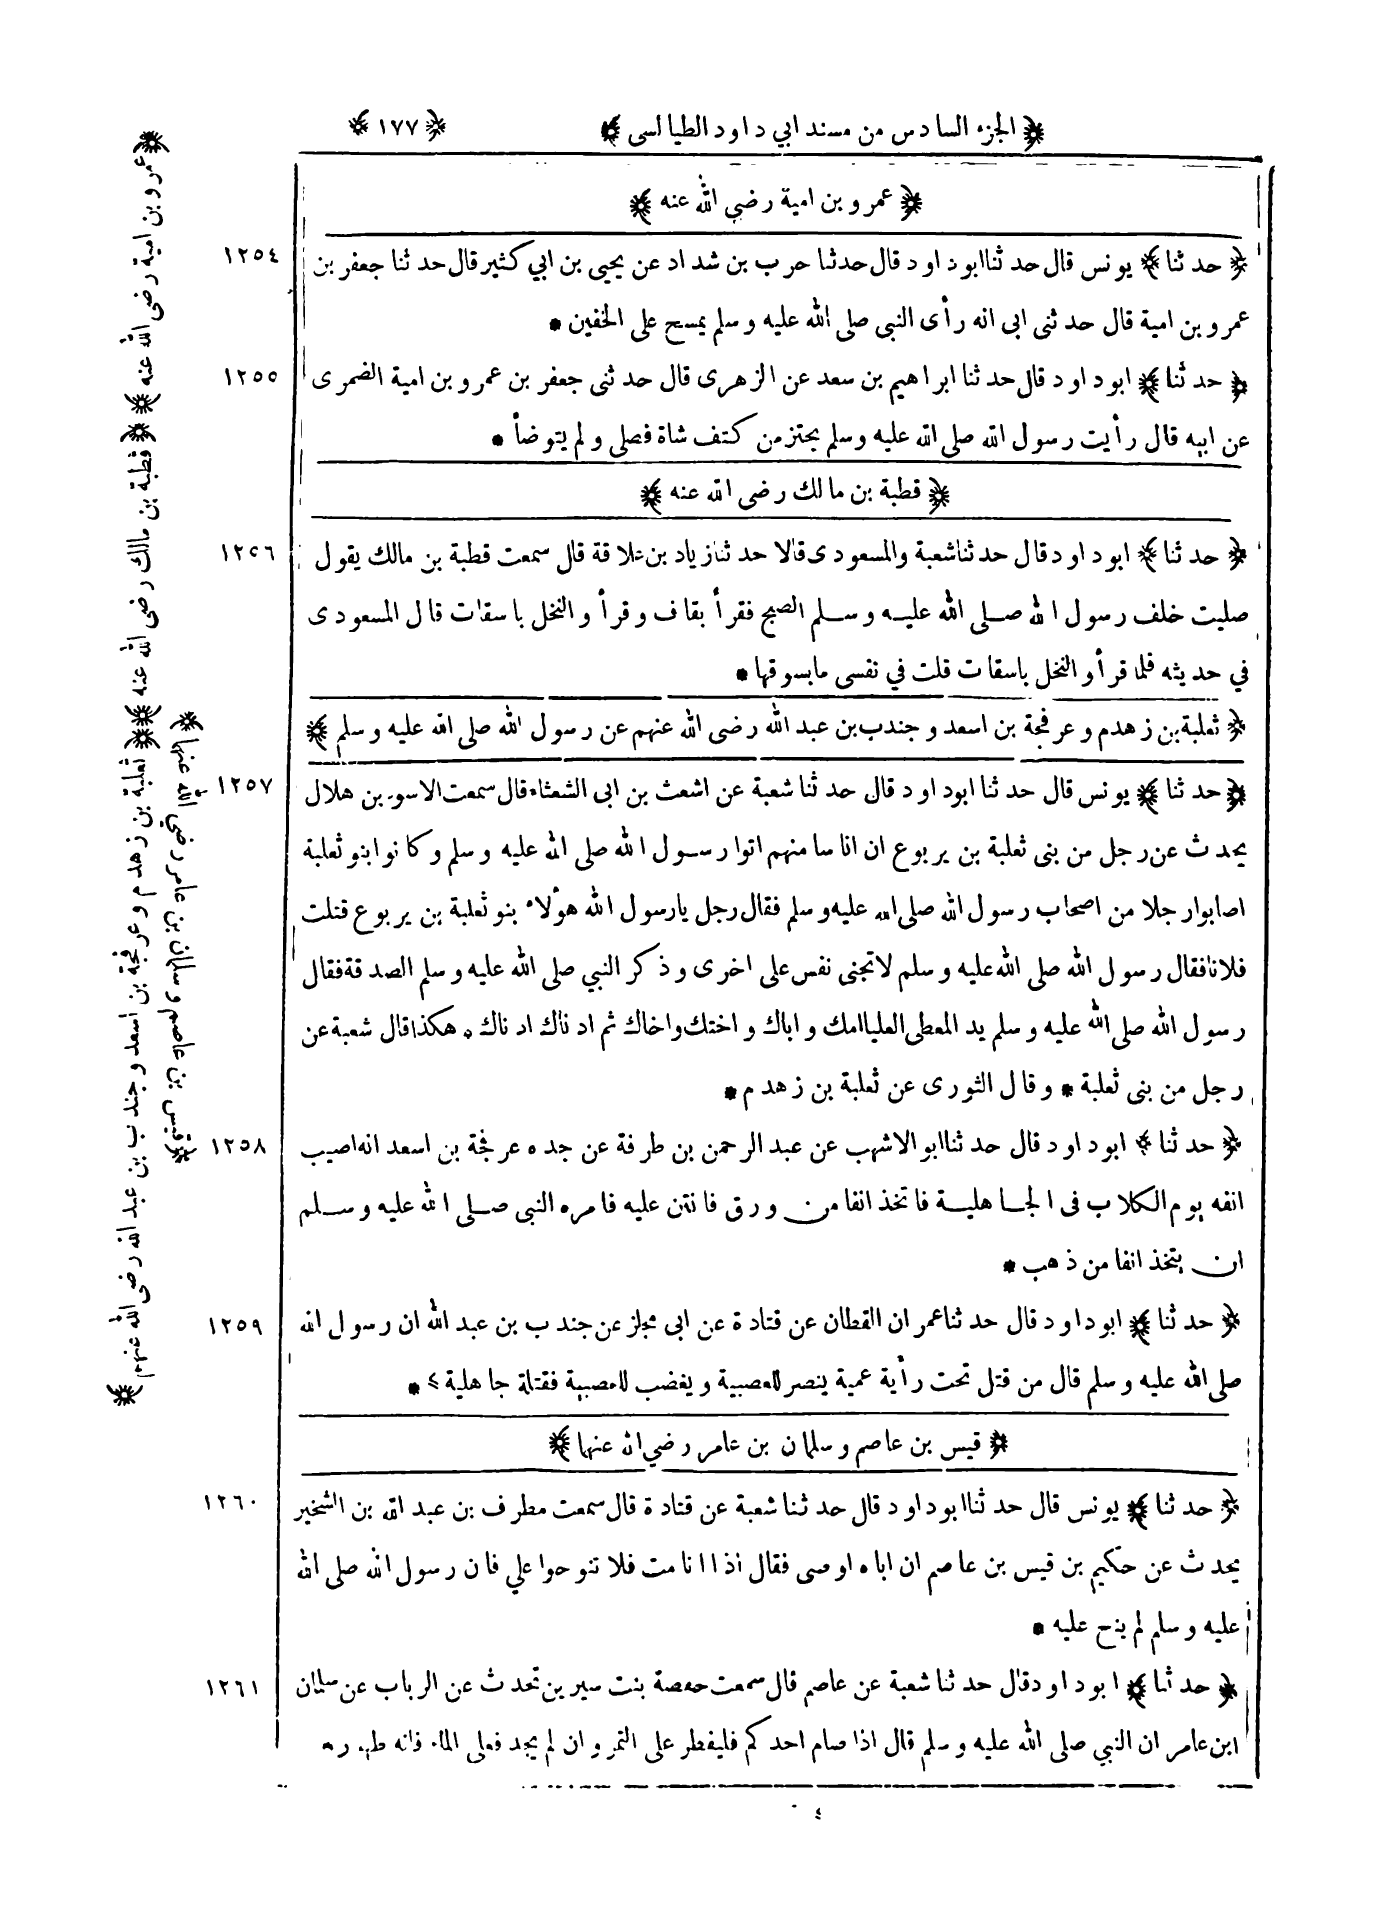 ﴿الجزء السادس من مسند ابي داود الطيالسى﴾ ﴿١٧٧﴾
﴿عمرو بن امية رضي الله عنه﴾
١٢٥٤ ﴿حدثنا﴾ يونس قال حدثنا ابوداود قال حدثنا حرب بن شداد عن يحيى بن ابي كثير قال حدثنا جعفر بن
عمرو بن امية قال حدثنى ابى انه رأى النبى صلى الله عليه وسلم يمسح على الخفين *
١٢٥٥ ﴿حدثنا﴾ ابوداود قال حدثنا ابراهيم بن سعد عن الزهرى قال حدثنى جعفر بن عمرو بن امية الضمرى
عن ابيه قال رأيت رسول الله صلى الله عليه وسلم يحتز من كتف شاة فصلى ولم يتوضأ *
﴿قطبة بن مالك رضى الله عنه﴾
١٢٥٦ ﴿حدثنا﴾ ابوداود قال حدثنا شعبة والمسعودى قالا حدثنا زياد بن علاقة قال سمعت قطبة بن مالك يقول
صليت خلف رسول الله صلى الله عليه وسلم الصبح فقرأ بقاف وقرأ والنخل باسقات قال المسعودى
في حديثه فلما قرأ والنخل باسقات قلت في نفسى مابسوقها *
﴿ثعلبة بن زهدم وعرفجة بن اسعد وجندب بن عبد الله رضى الله عنهم عن رسول الله صلى الله عليه وسلم﴾
١٢٥٧ ﴿حدثنا﴾ يونس قال حدثنا ابوداود قال حدثنا شعبة عن اشعث بن ابى الشعثاء قال سمعت الاسود بن هلال
يحدث عن رجل من بنى ثعلبة بن يربوع ان اناسا منهم اتوا رسول الله صلى الله عليه وسلم وكانوا بنو ثعلبة
اصابوا رجلا من اصحاب رسول الله صلى الله عليه وسلم فقال رجل يارسول الله هؤلاء بنو ثعلبة بن يربوع قتلت
فلانا فقال رسول الله صلى الله عليه وسلم لاتجنى نفس على اخرى وذكر النبي صلى الله عليه وسلم الصدقة فقال
رسول الله صلى الله عليه وسلم يد المعطى العليا امك واباك واختك واخاك ثم ادناك ادناك * هكذا قال شعبة عن
رجل من بنى ثعلبة * وقال الثورى عن ثعلبة بن زهدم *
١٢٥٨ ﴿حدثنا﴾ ابوداود قال حدثنا ابو الاشهب عن عبد الرحمن بن طرفة عن جده عرفجة بن اسعد انه اصيب
انفه يوم الكلاب فى الجاهلية فاتخذ انفا من ورق فانتن عليه فامره النبى صلى الله عليه وسلم
ان يتخذ انفا من ذهب *
١٢٥٩ ﴿حدثنا﴾ ابوداود قال حدثنا عمران القطان عن قتادة عن ابى مجلز عن جندب بن عبد الله ان رسول الله
صلى الله عليه وسلم قال من قتل تحت رأية عمية ينصر للعصبية ويغضب للعصبية فقتلة جاهلية *
﴿قيس بن عاصم وسلمان بن عامر رضي الله عنهما﴾
١٢٦٠ ﴿حدثنا﴾ يونس قال حدثنا ابوداود قال حدثنا شعبة عن قتادة قال سمعت مطرف بن عبد الله بن الشخير
يحدث عن حكيم بن قيس بن عاصم ان اباه اوصى فقال اذا انا مت فلا تنوحوا علي فان رسول الله صلى الله
عليه وسلم لم ينح عليه *
١٢٦١ ﴿حدثنا﴾ ابوداود قال حدثنا شعبة عن عاصم قال سمعت حفصة بنت سيرين تحدث عن الرباب عن سلمان
ابن عامر ان النبي صلى الله عليه وسلم قال اذا صام احدكم فليفطر على التمر وان لم يجد فعلى الماء فانه طهور *
﴿عمرو بن امية رضى الله عنه﴾ ﴿قطبة بن مالك رضى الله عنه﴾ ﴿ثعلبة بن زهدم وعرفجة بن اسعد وجندب بن عبد الله رضى الله عنهم﴾
﴿قيس بن عاصم وسلمان بن عامر رضي الله عنهما﴾